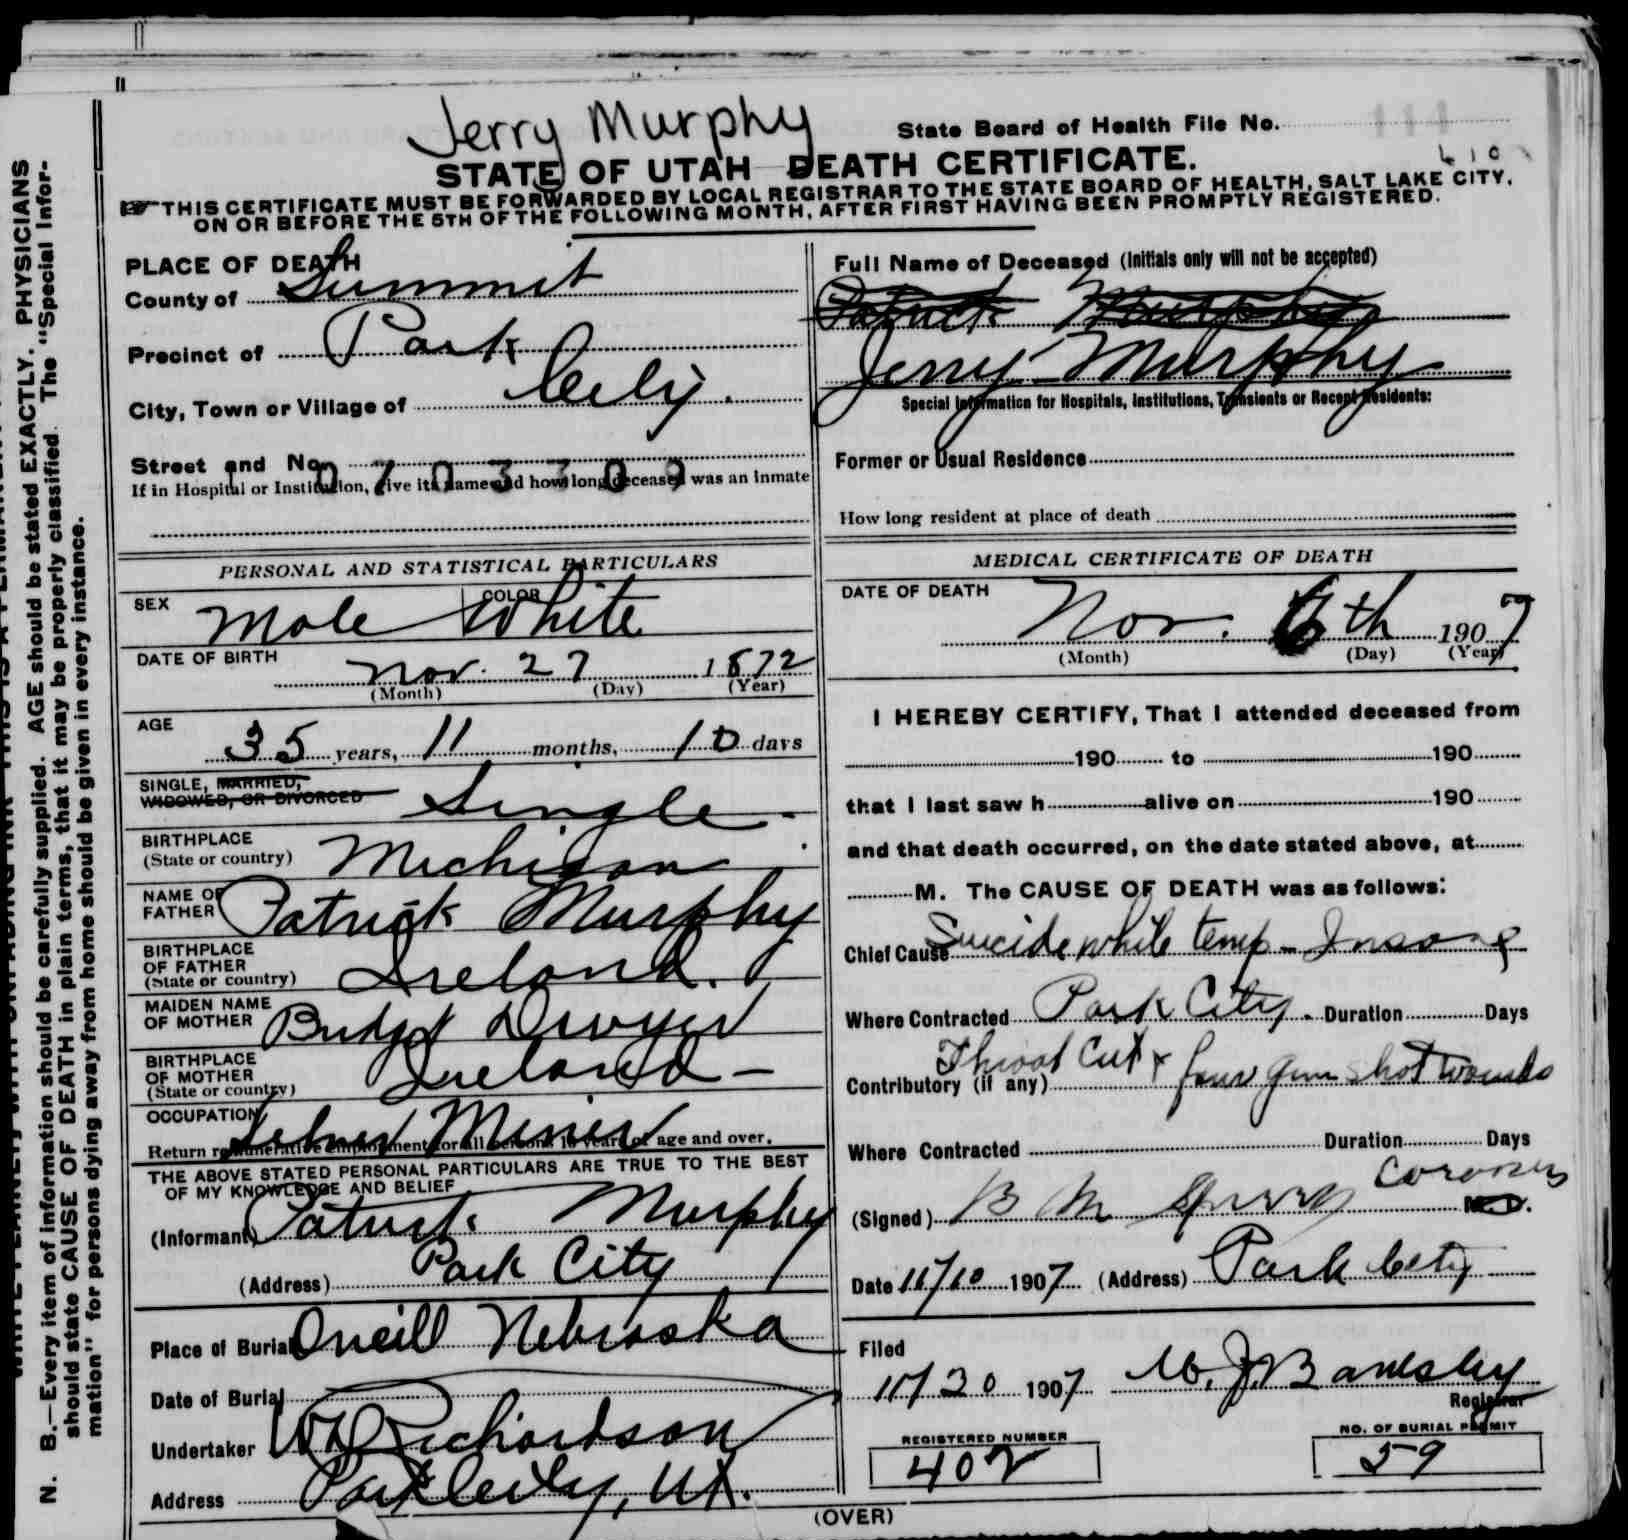 Jerry Murphy
State Board of Health File No.
STATE OF UTAH DEATH CERTIFICATE.
THIS CERTIFICATE MUST BE FORWARDED BY LOCAL REGISTRAR TO THE STATE BOARD OF HEALTH, SALT LAKE CITY,
ON OR BEFORE THE 5TH OF THE FOLLOWING MONTH, AFTER FIRST HAVING BEEN PROMPTLY REGISTERED.
PLACE OF DEATH
County of Summit
Precinct of Park
City, Town or Village of City.
Street and No.
If in Hospital or Institution, give its name and how long deceased was an inmate
Full Name of Deceased (Initials only will not be accepted)
Patrick Murphy
Jerry Murphy
Special Information for Hospitals, Institutions, Transients or Recent Residents:
Former or Usual Residence
How long resident at place of death
PERSONAL AND STATISTICAL PARTICULARS
SEX Male COLOR White
DATE OF BIRTH Nov. 27 1872
(Month) (Day) (Year)
AGE 35 years, 11 months, 10 days
SINGLE, MARRIED,
WIDOWED, OR DIVORCED Single
BIRTHPLACE
(State or country) Michigan
NAME OF
FATHER Patrick Murphy
BIRTHPLACE
OF FATHER
(State or country) Ireland.
MAIDEN NAME
OF MOTHER Bridget Dwyer
BIRTHPLACE
OF MOTHER
(State or country) Ireland
OCCUPATION Miner
Return remunerative employment for all persons 10 years of age and over.
THE ABOVE STATED PERSONAL PARTICULARS ARE TRUE TO THE BEST
OF MY KNOWLEDGE AND BELIEF
(Informant) Patrick Murphy
(Address) Park City
Place of Burial Oneill Nebraska
Date of Burial
Undertaker Richardson
Address Park City, Ut.
MEDICAL CERTIFICATE OF DEATH
DATE OF DEATH Nov. 6th 1907
(Month) (Day) (Year)
I HEREBY CERTIFY, That I attended deceased from
190 to 190
that I last saw h alive on 190
and that death occurred, on the date stated above, at
M. The CAUSE OF DEATH was as follows:
Chief Cause Suicide while temp- Insane
Where Contracted Park City. Duration Days
Contributory (if any) Throat Cut & four gun shot wounds
Where Contracted Duration Days
(Signed) B M Coroner M.D.
Date 11/10 1907 (Address) Park City
Filed
11/30 1907
Registrar
REGISTERED NUMBER
402
NO. OF BURIAL PERMIT
59
(OVER)
N. B.—Every item of information should be carefully supplied. AGE should be stated EXACTLY. PHYSICIANS
should state CAUSE OF DEATH in plain terms, that it may be properly classified. The "Special Infor-
mation" for persons dying away from home should be given in every instance.